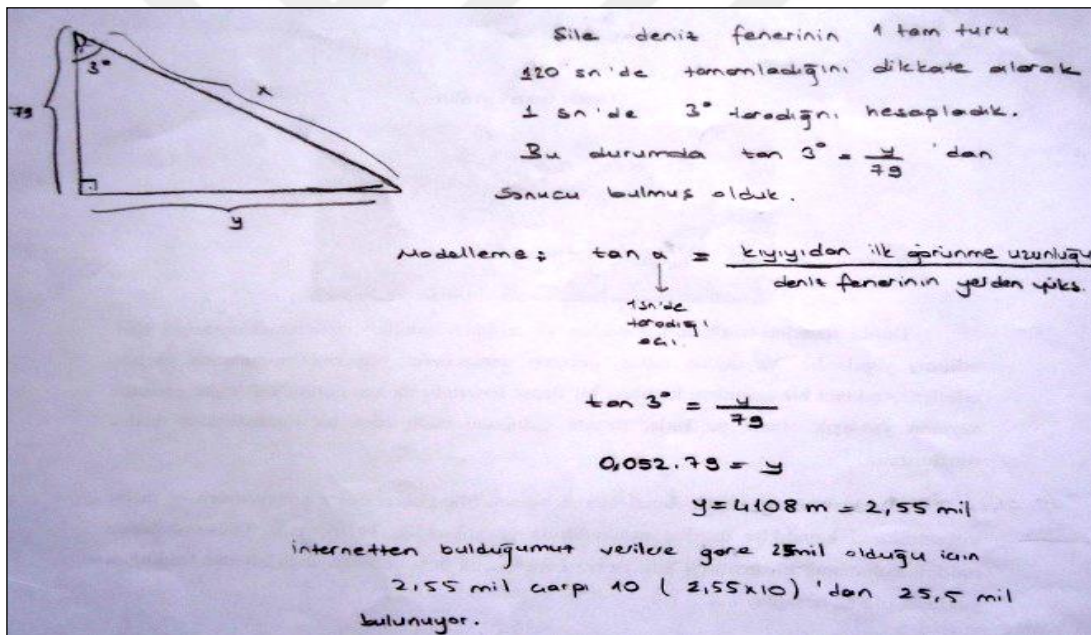 79
3°
x
y
Şile deniz fenerinin 1 tam turu
120 sn'de tamamladığını dikkate alarak
1 sn'de 3° taradığını hesapladık.
Bu durumda tan 3° = y/79 'dan
sonucu bulmuş olduk.
Modelleme: tan α = kıyıyıdan ilk görünme uzunluğu / deniz fenerinin yerden yüks.
1 sn'de
taradığı
açı.
tan 3° = y/79
0,052.79 = y
y = 4108 m = 2,55 mil
internetten bulduğumuz verilere göre 25mil olduğu için
2,55 mil çarpı 10 (2,55x10) 'dan 25,5 mil
bulunuyor.